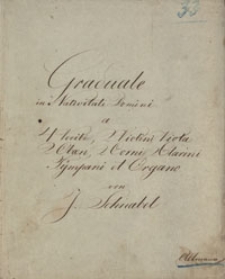 33
Graduale
in Nativitate Domini
a
4 Voci, 2 Violini Viola
2 Corni, 2 Clarini
Tympani et Organo
von
J. Schnabel